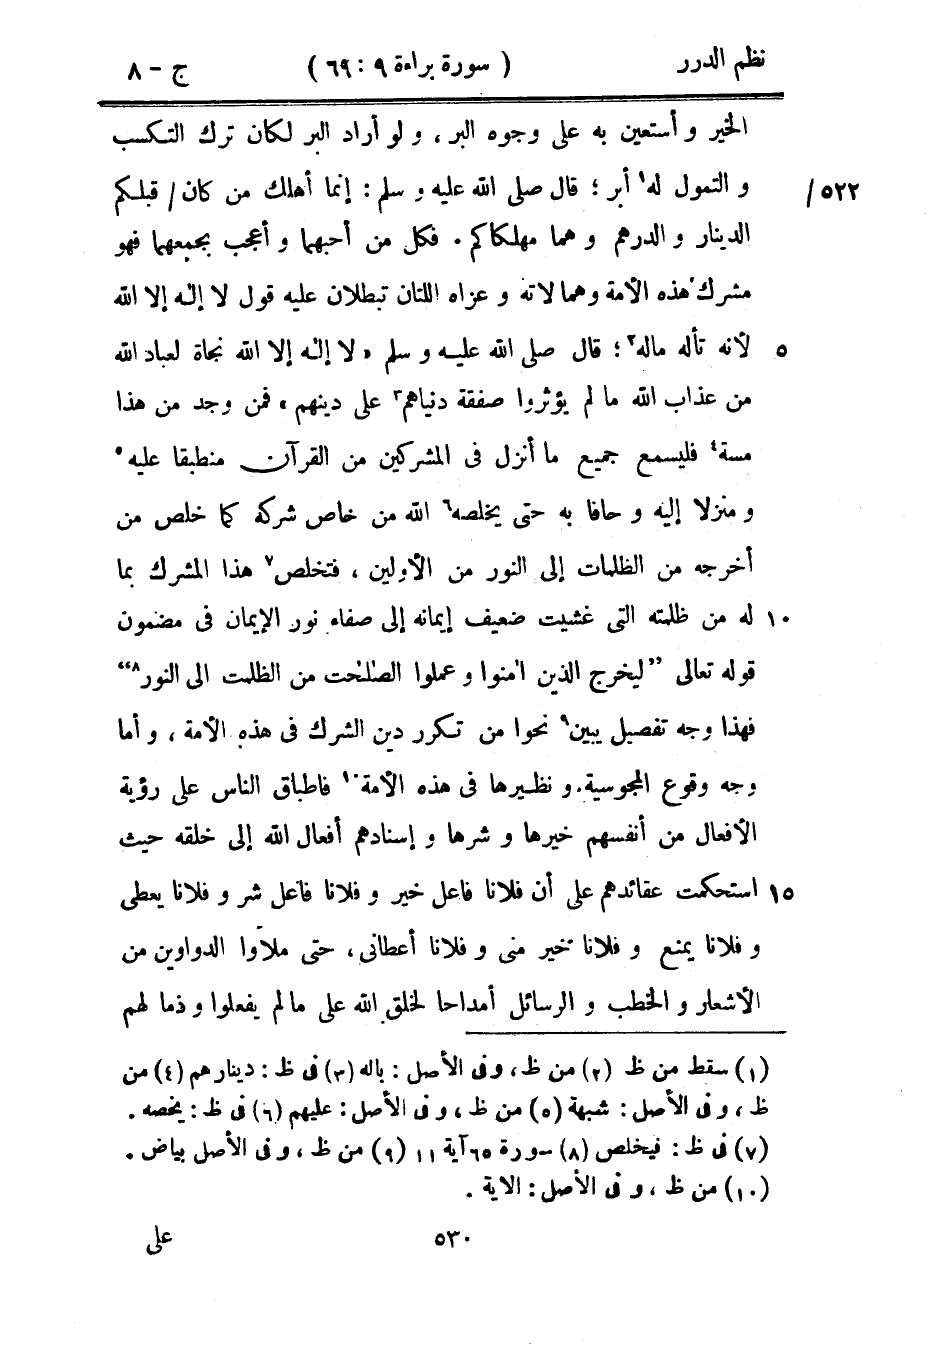 نظم الدرر ( سورة براءة ٩ : ٦٩ ) ج - ٨
الخير و أستعين به على وجوه البر ، و لو أراد البر لكان ترك التكسب
و التمول له١ أبر ؛ قال صلى الله عليه و سلم : إنما أهلك من كان / قبلكم ٥٢٢ /
الدينار و الدرهم و هما مهلكاكم . فكل من أحبهما و أعجب بجمعهما فهو
مشرك هذه الأمة وهما لاته و عزاه اللتان تبطلان عليه قول لا إلٰه إلا الله
٥ لأنه تأله ماله٢ ؛ قال صلى الله عليه و سلم « لا إلٰه إلا الله نجاة لعباد الله
من عذاب الله ما لم يؤثروا صفقة دنياهم٣ على دينهم » فمن وجد من هذا
مسة٤ فليسمع جميع ما أنزل فى المشركين من القرآن منطبقا عليه٥
و منزلا إليه و حافا به حتى يخلصه٦ الله من خاص شركه كما خلص من
أخرجه من الظلمات إلى النور من الأولين ، فتخلص٧ هذا المشرك بما
١٠ له من ظلمته التى غشيت ضعيف إيمانه إلى صفاء نور الإيمان فى مضمون
قوله تعالى ”ليخرج الذين اٰمنوا و عملوا الصٰلحٰت من الظلمت الى النور٨“
فهذا وجه تفصيل يبين٩ نحوا من تكرر دين الشرك فى هذه الأمة ، و أما
وجه وقوع المجوسية و نظيرها فى هذه الأمة١٠ فاطباق الناس على رؤية
الأفعال من أنفسهم خيرها و شرها و إسنادهم أفعال الله إلى خلقه حيث
١٥ استحكمت عقائدهم على أن فلانا فاعل خير و فلانا فاعل شر و فلانا يعطى
و فلانا يمنع و فلانا خير منى و فلانا أعطانى ، حتى ملأوا الدواوين من
الأشعار و الخطب و الرسائل أمداحا لخلق الله على ما لم يفعلوا و ذما لهم
(١) سقط من ظ (٢) من ظ ، وفى الأصل : باله (٣) فى ظ : دينارهم (٤) من
ظ ، و فى الأصل : شبهة (٥) من ظ ، و فى الأصل : عليهم (٦) فى ظ : يخصه .
(٧) فى ظ : فيخلص (٨) سورة ٦٥ آية ١١ (٩) من ظ ، و فى الأصل بياض .
(١٠) من ظ ، و فى الأصل : الاية .
٥٣٠ على